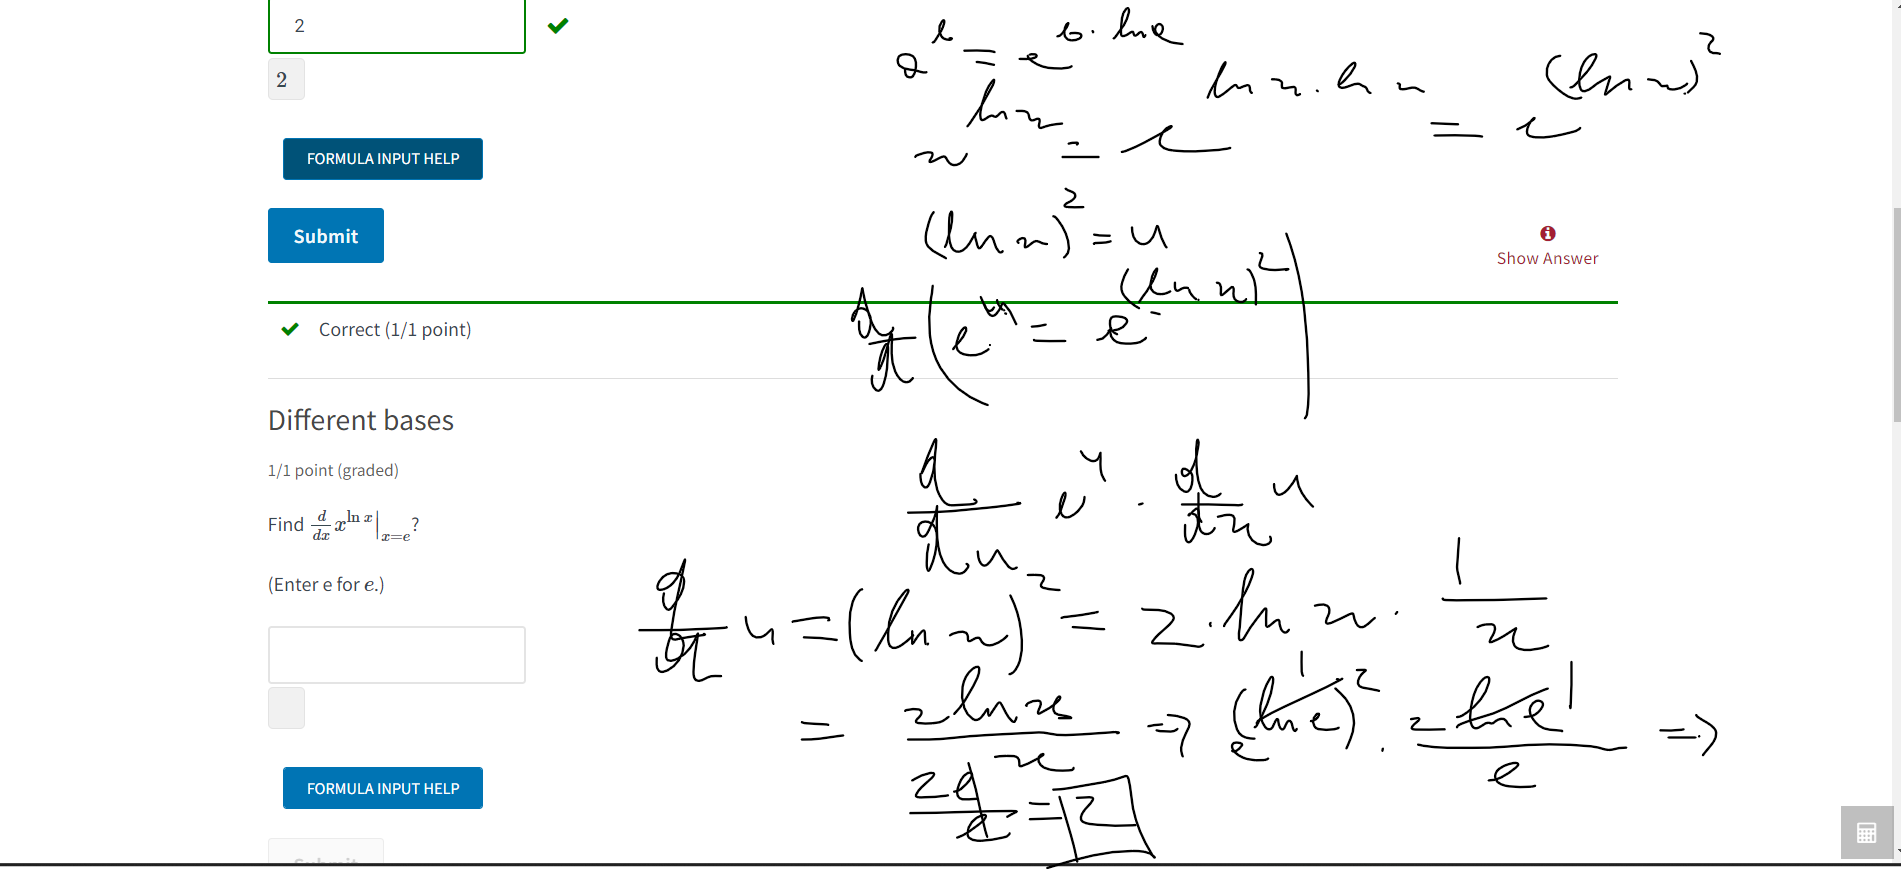 2
2
FORMULA INPUT HELP
Submit
Show Answer
Correct (1/1 point)
Different bases
1/1 point (graded)
Find d/dx x^{ln x}|_{x=e}?
(Enter e for e.)
FORMULA INPUT HELP
Submit
a^b = e^{b · ln a}
x^{ln x} = e^{ln x · ln x} = e^{(ln x)^2}
(ln x)^2 = u
d/dx (e^u = e^{(ln x)^2})
d/du e^u · d/dx u
d/dx u = (ln x)^2 = 2 · ln x · 1/x
= 2 ln x / x => e^{(ln e)^2} · 2 ln e / e =>
2e/e = 2